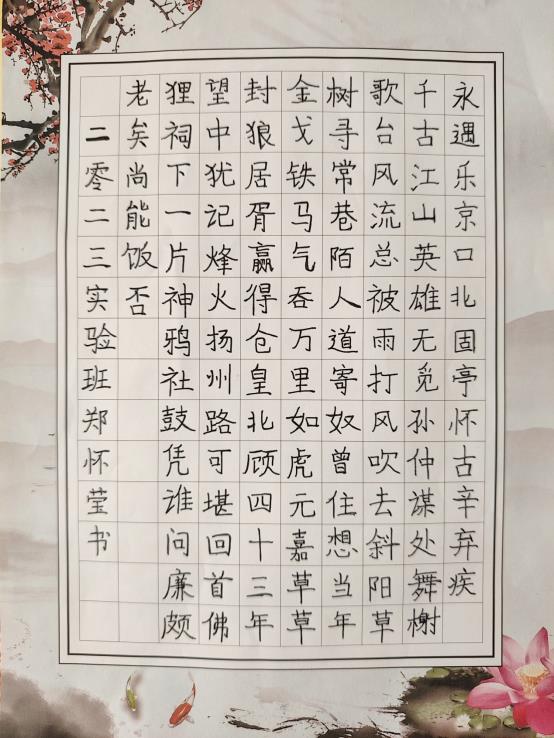 永遇乐京口北固亭怀古辛弃疾
千古江山英雄无觅孙仲谋处舞榭
歌台风流总被雨打风吹去斜阳草
树寻常巷陌人道寄奴曾住想当年
金戈铁马气吞万里如虎元嘉草草
封狼居胥赢得仓皇北顾四十三年
望中犹记烽火扬州路可堪回首佛
狸祠下一片神鸦社鼓凭谁问廉颇
老矣尚能饭否
二零二三实验班郑怀莹书